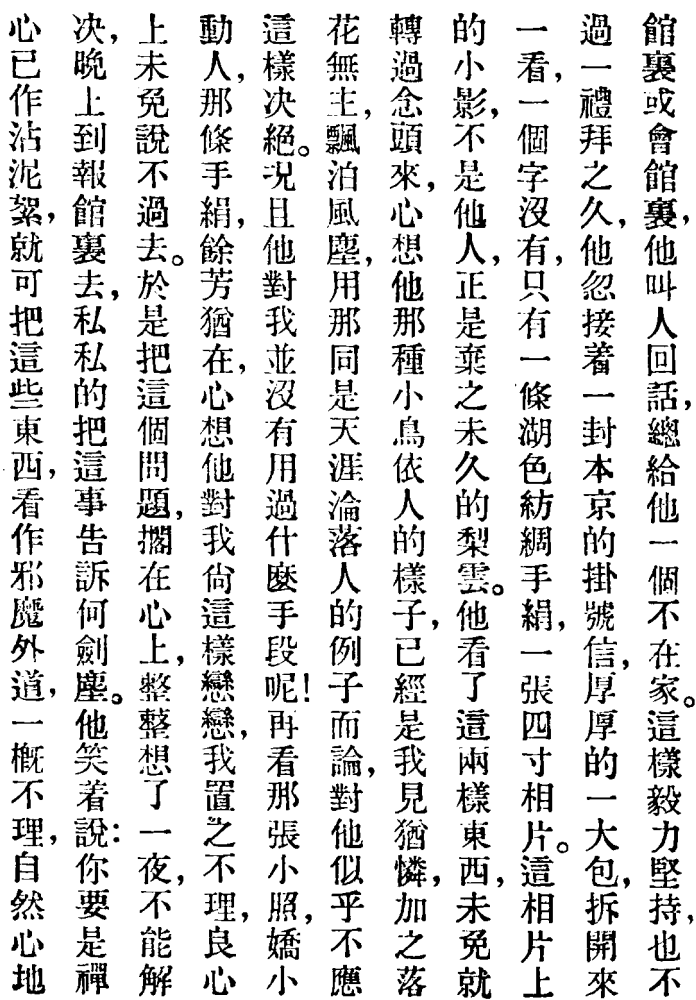 館裏或會館裏，他叫人回話，總給他一個不在家。這樣毅力堅持，也不
過一禮拜之久，他忽接着一封本京的掛號信，厚厚的一大包，拆開來
一看，一個字沒有，只有一條湖色紡綢手絹，一張四寸相片。這相片上
的小影，不是他人，正是棄之未久的梨雲。他看了這兩樣東西，未免就
轉過念頭來，心想他那種小鳥依人的樣子，已經是我見猶憐，加之落
花無主，飄泊風塵，用那同是天涯淪落人的例子而論，對他似乎不應
這樣決絕。況且他對我並沒有用過什麼手段呢！再看那張小照，嬌小
動人，那條手絹，餘芳猶在，心想他對我尙這樣戀戀，我置之不理，良心
上未免說不過去。於是把這個問題，擱在心上，整整想了一夜，不能解
决，晚上到報館裏去，私私的把這事告訴何劍塵。他笑着說：你要是禪
心已作沾泥絮，就可把這些東西，看作邪魔外道，一概不理，自然心地